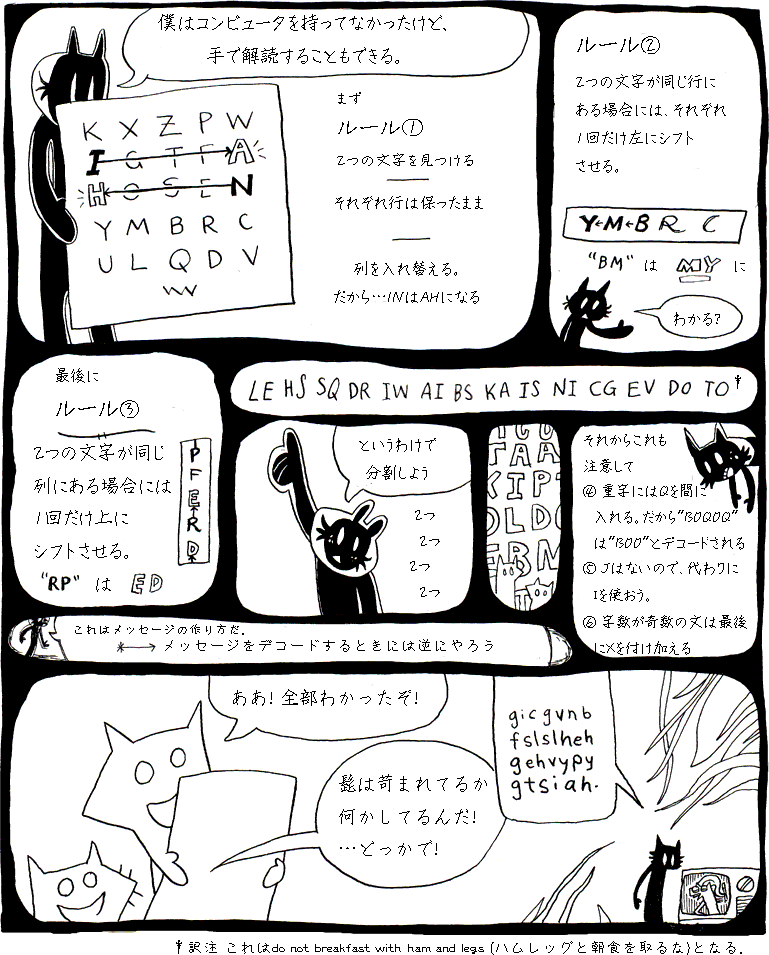 僕はコンピュータを持ってなかったけど、
手で解読することもできる。
K X Z P W
I G T F A
H O S E N
Y M B R C
U L Q D V
まず
ルール①
2つの文字を見つける
それぞれ行は保ったまま
列を入れ替える。
だから…INはAHになる
ルール②
2つの文字が同じ行に
ある場合には、それぞれ
1回だけ左にシフト
させる。
Y←M←B R C
"BM" は MY に
わかる?
最後に
ルール③
2つの文字が同じ
列にある場合には
1回だけ上に
シフトさせる。
"RP" は ED
P
F
E
R
D
LE HS SQ DR IW AI BS KA IS NI CG EV DO TO
というわけで
分割しよう
2つ
2つ
2つ
2つ
それからこれも
注意して
ⓐ 重字にはQを間に
入れる。だから"BOQOQ"
は"BOO"とデコードされる
ⓑ Jはないので、代わりに
Iを使おう。
ⓒ 字数が奇数の文は最後
にXを付け加える
これはメッセージの作り方だ。
メッセージをデコードするときには逆にやろう
ああ! 全部わかったぞ!
髭は苛まれてるか
何かしてるんだ!
…どっかで!
gicgvnb
fslslheh
gehvypy
gtsiah.
訳注 これはdo not breakfast with ham and legs (ハムレッグと朝食を取るな)となる.